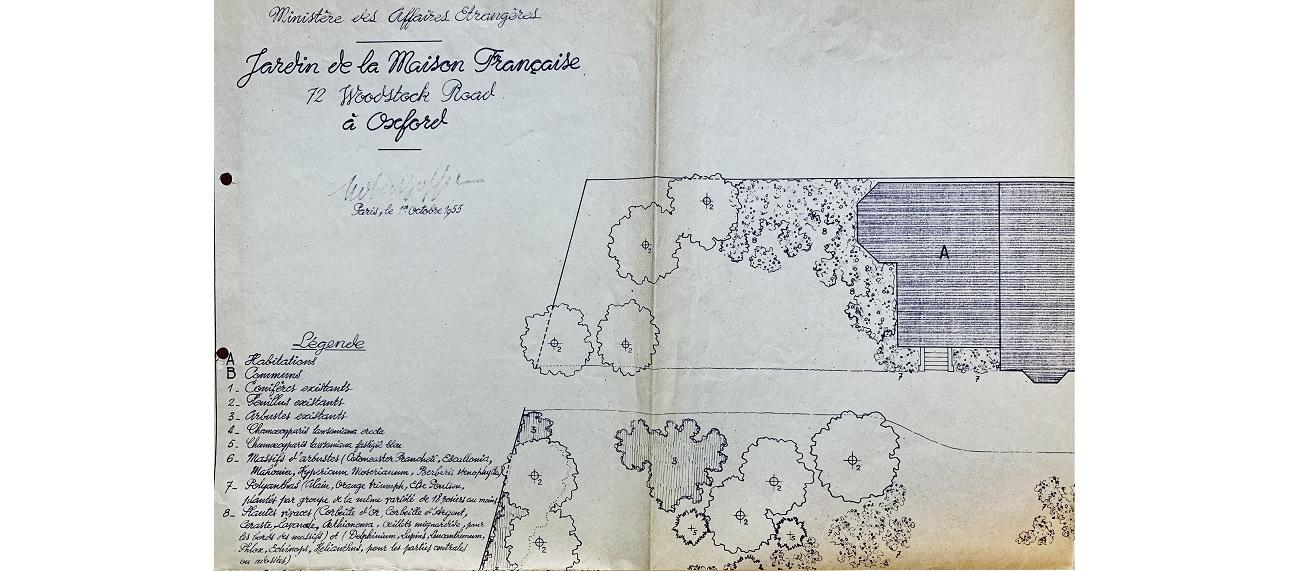 Ministère des Affaires Etrangères
Jardin de la Maison Française
72 Woodstock Road
à Oxford
Paris, le 1er Octobre 1955
Légende
A Habitations
B Communs
1_ Conifères existants
2_ Feuillus existants
3_ Arbustes existants
4_ Chamæcyparis lawsoniana erecta
5_ Chamæcyparis lawsoniana fastigié bleu
6_ Massifs d'arbustes (Cotoneaster Francheti, Escallonia,
Mahonia, Hypericum Moserianum, Berberis stenophylla)
7_ Polyanthas (Alain, Orange Triumph, Else Poulsen,
plantés par groupe de la même variété de 18 rosiers au moins
8_ Plantes vivaces (Corbeille d'Or, Corbeille d'Argent,
Ceraste, Lavande, Æthionema, œillets mignardise, pour
les bords des massifs) et (Delphinium, Lupins, Leucanthemum,
Phlox, Echinops, Helianthus, pour les parties centrales
ou adossées)
2
2
8
8
A
8
2
2
7
7
3
3
2
2
2
2
5
5
7
7
2